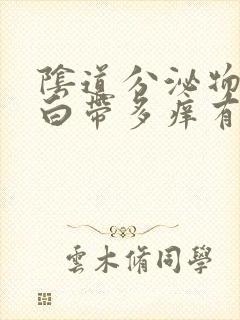 陰道分泌物
白帶多痒有
雲木脩同學